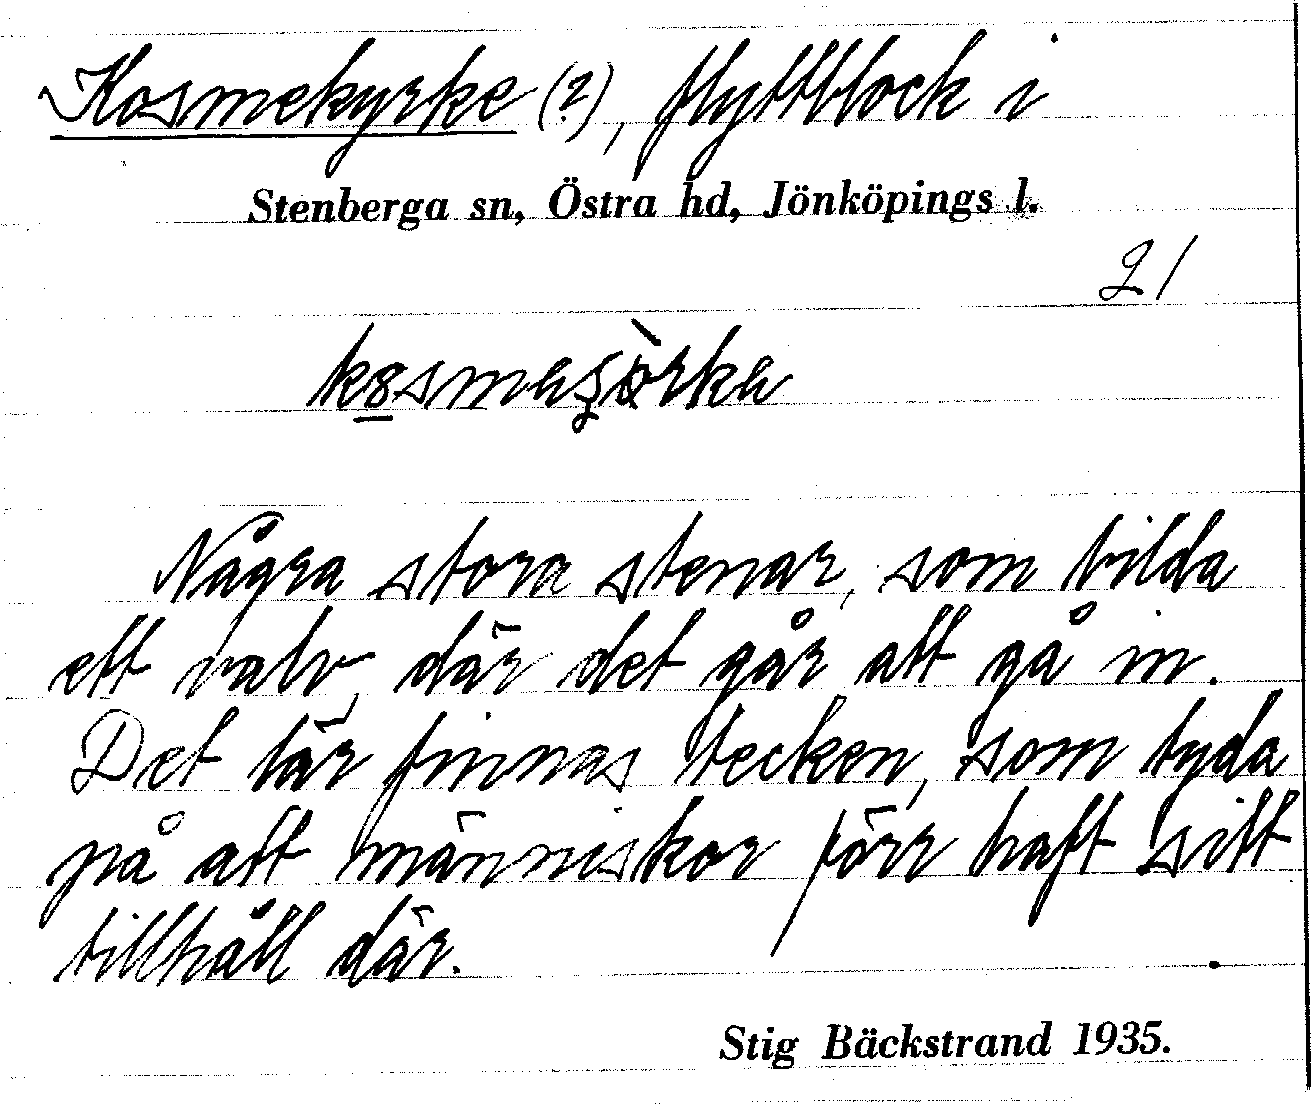 Kosmekyrke (?), flyttblock i
Stenberga sn, Östra hd, Jönköpings l.
21
Några stora stenar, som bilda
ett valv, där det går att gå in.
Det lär finnas tecken, som tyda
på att människor förr haft sitt
tillhåll där.
Stig Bäckstrand 1935.